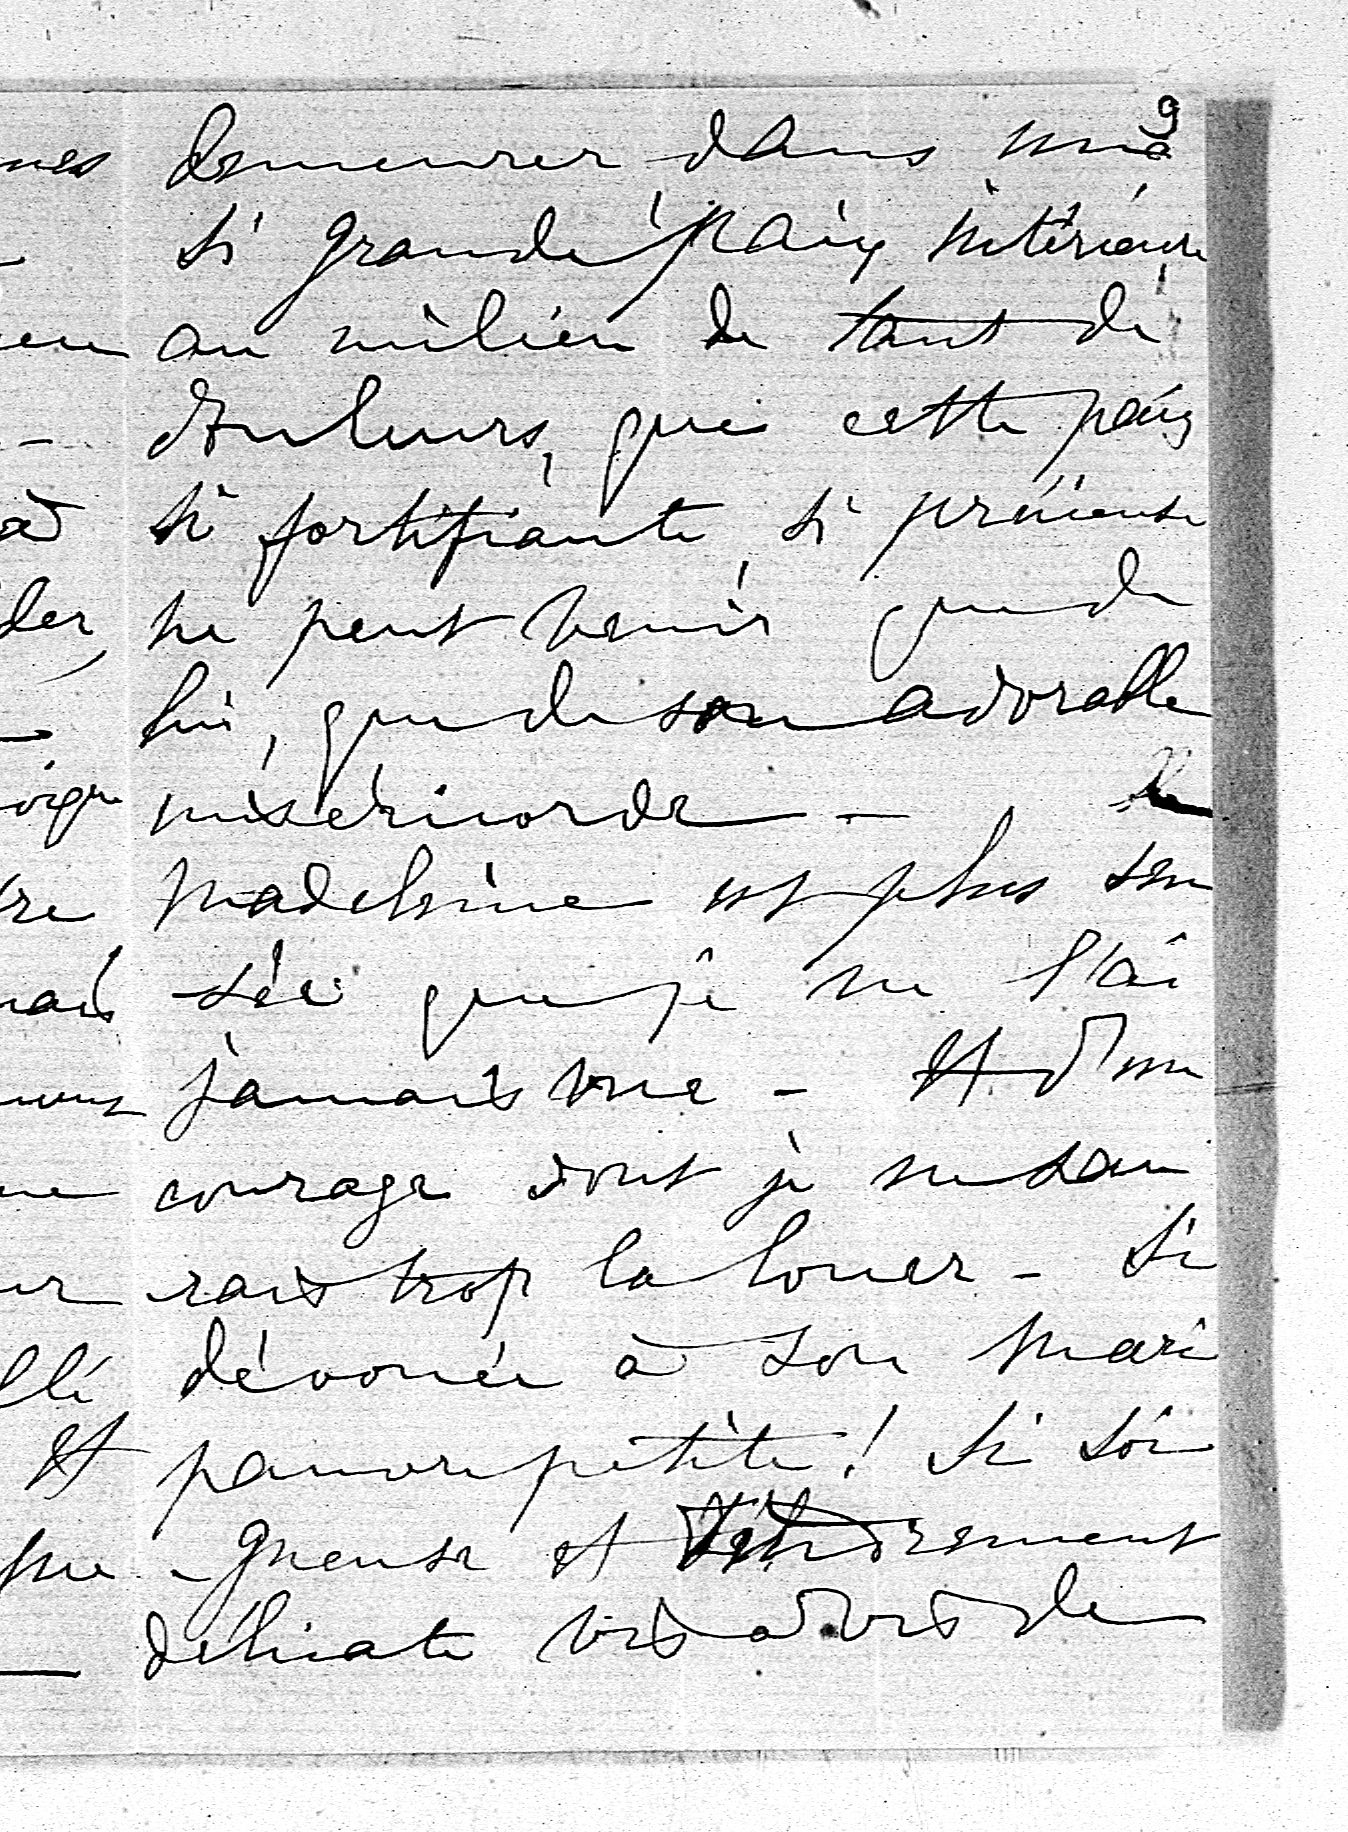 9
demeurer dans une
si grande paix intérieure
au milieu de tant de
douleurs, que cette paix
si fortifiante si précieuse
ne peut venir que de
lui, que de son adorable
miséricorde -
Madeleine est plus sen
sée que je ne l'ai
jamais vue - et d'un
courage dont je ne sau
rais trop la louer - si
dévouée à son mari
pauvre petite ! si soi
-gneuse et tendrement
délicate vis à vis de